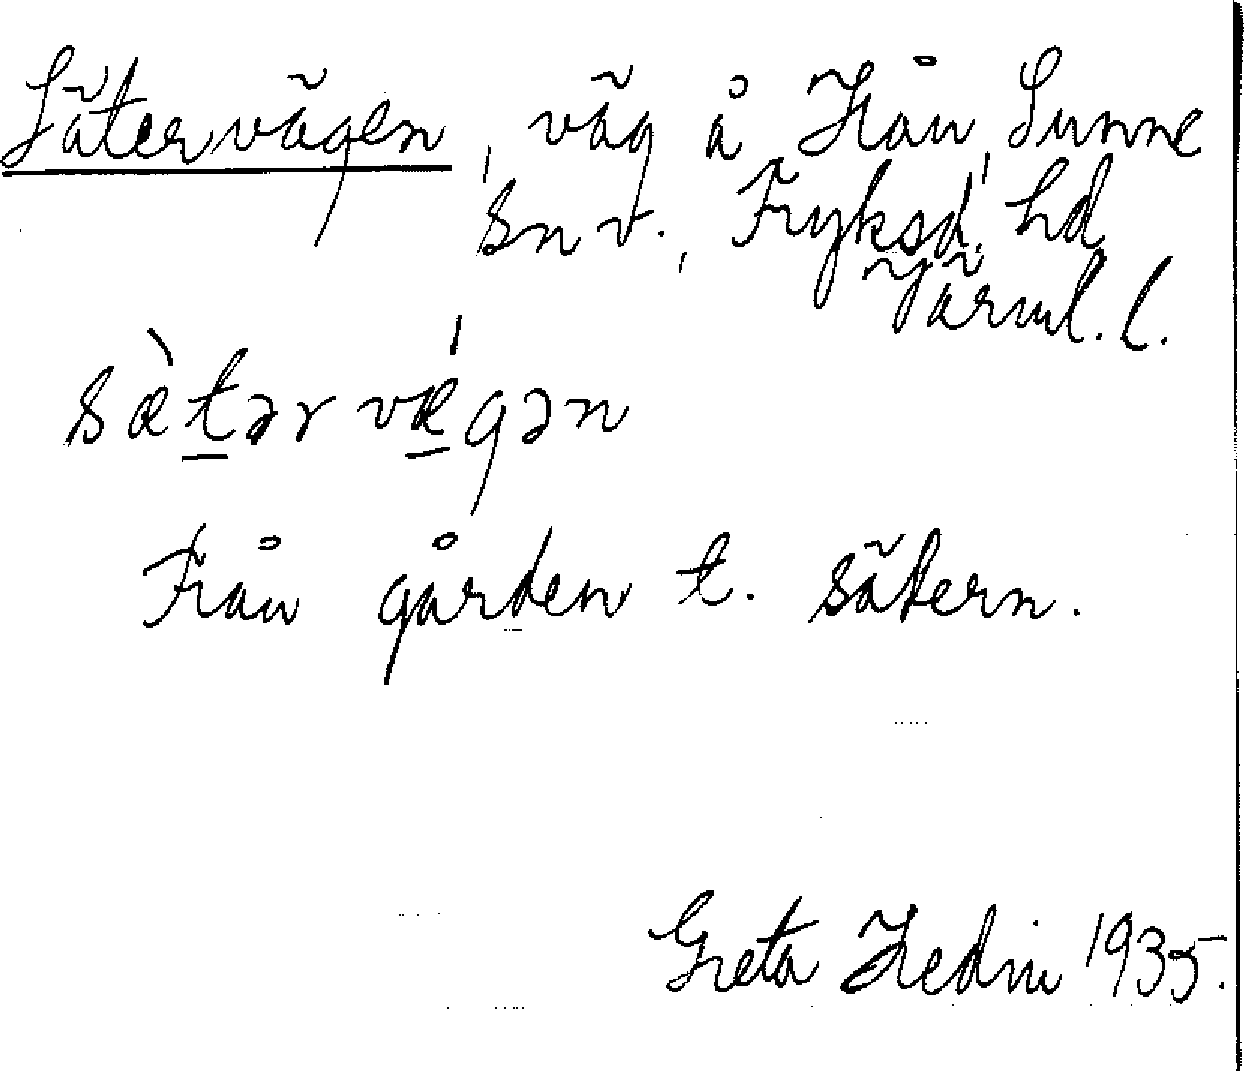 Sätervägen, väg å Hån, Sunne
sn v., Fryksd. hd
Värml. l.
sæ̀tərvǽgən
Från gården t. sätern.
Greta Hedin 1935.